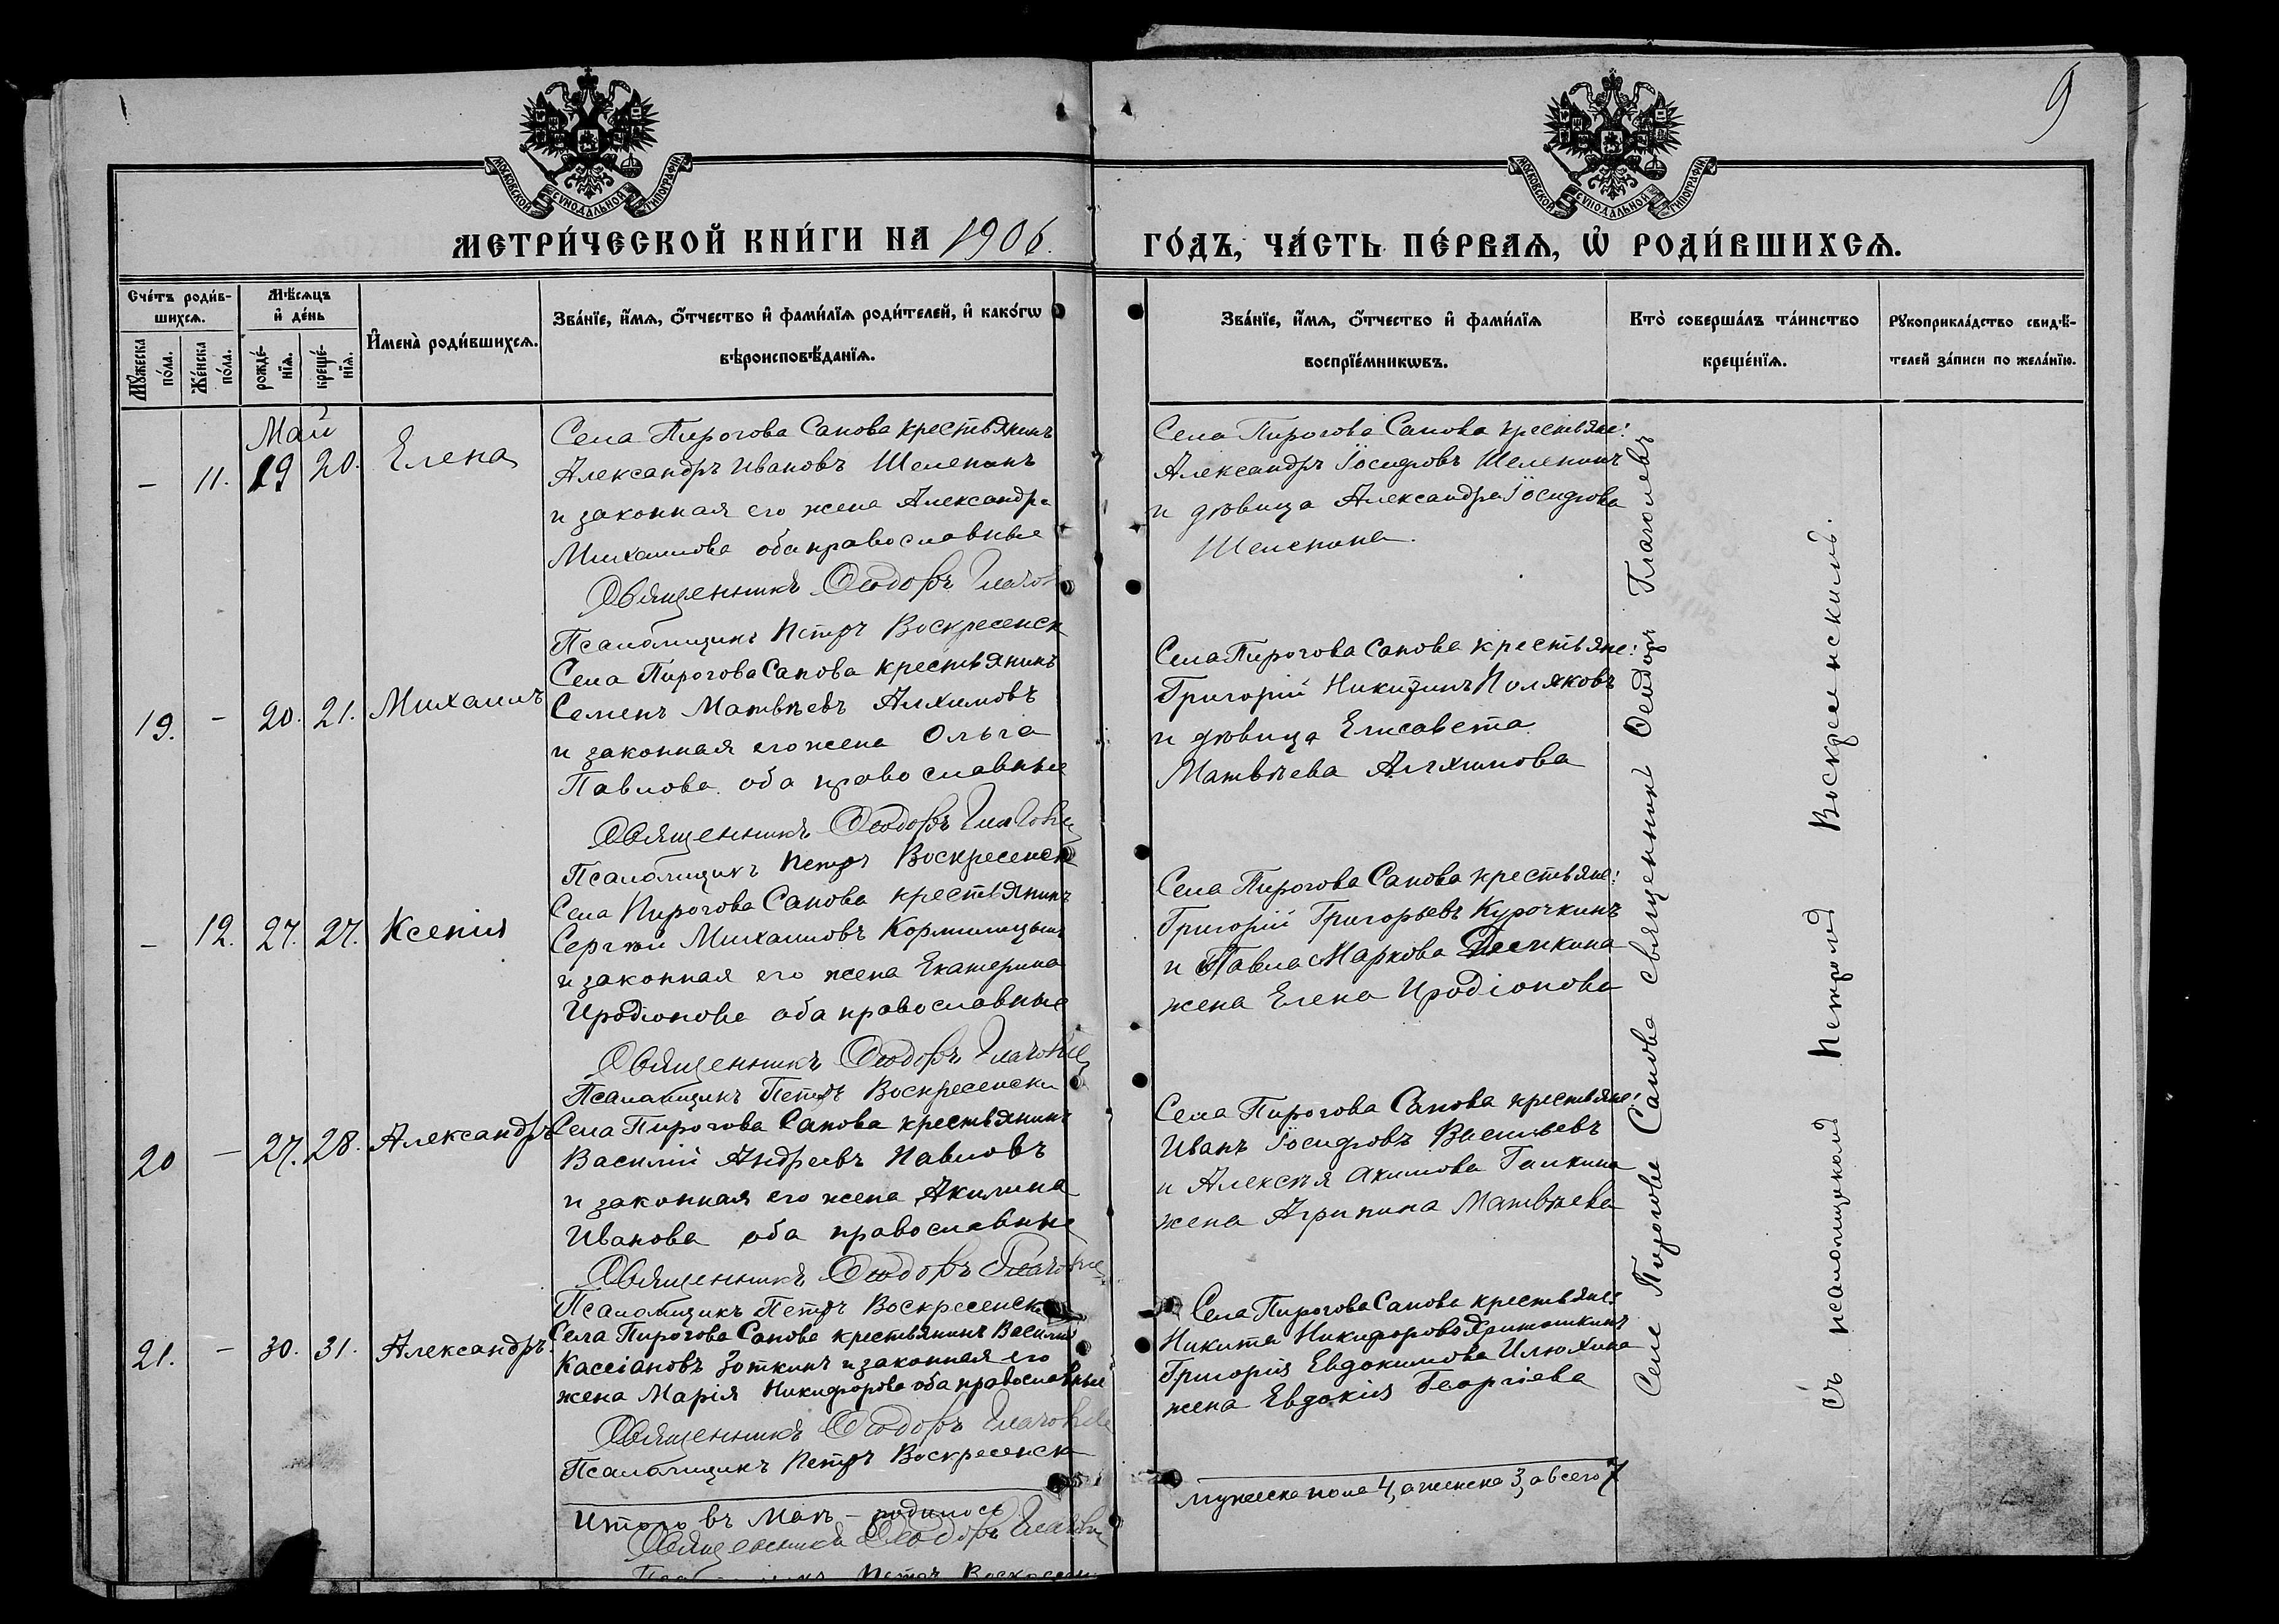 9
МОСКОВСКОЙ СѴНОДАЛЬНОЙ ТИПОГРАФІИ
МОСКОВСКОЙ СѴНОДАЛЬНОЙ ТИПОГРАФІИ
МЕТРИ́ЧЕСКОЙ КНИ́ГИ НА 1906.
ГО́ДЪ, ЧА́СТЬ ПЕ́РВАѦ, Ѡ҆ РОДИ́ВШИХСѦ.
Сче́тъ роди́в-
шихсѧ.
Мꙋ́жеска
по́ла.
Же́нска
по́ла.
Мѣ́сѧцъ
и҆ де́нь
рожде́-
нїѧ.
креще́-
нїѧ.
И҆мена̀ роди́вшихсѧ.
Зва́нїе, и҆́мѧ, ѻ҆́тчество и҆ фами́лїѧ роди́телей, и҆ како́гѡ
вѣроисповѣ́данїѧ.
Зва́нїе, и҆́мѧ, ѻ҆́тчество и҆ фами́лїѧ
воспрїе́мникѡвъ.
Кто̀ соверша́лъ та́инство
креще́нїѧ.
Рꙋкоприкла́дство свидѣ́-
телей за́писи по жела́нїю.
Май
– 11. 19 20. Елена
Села Пирогова Сапова крестьянинъ
Александръ Ивановъ Шелепинъ
и законная его жена Александра
Михаилова оба православные
Священникъ Ѳеодоръ Глагол
Псаломщикъ Петръ Воскресенск
Села Пирогова Сапова крестьяне:
Александръ Іосифовъ Шелепинъ
и дѣвица Александра Іосифова
Шелепина.
19. – 20. 21. Михаилъ
Села Пирогова Сапова крестьянинъ
Семенъ Матвѣевъ Алхимовъ
и законная его жена Ольга
Павлова оба православные
Священникъ Ѳеодоръ Глаголе
Псаломщикъ Петръ Воскресенск
Села Пирогова Сапова крестьяне:
Григорій Никитинъ Поляковъ
и дѣвица Елисавета
Матвѣева Алхимова
– 12. 27. 27. Ксенія
Села Пирогова Сапова крестьянинъ
Сергѣй Михаиловъ Кормилицынъ
и законная его жена Екатерина
Иродіонова оба православные
Священникъ Ѳеодоръ Глаголе
Псаломщикъ Петръ Воскресенск
Села Пирогова Сапова крестьяне:
Григорій Григорьевъ Курочкинъ
и Павла Маркова
жена Елена Иродіонова
20 – 27. 28. Александръ
Села Пирогова Сапова крестьянинъ
Василій Андреевъ Павловъ
и законная его жена Акилина
Иванова оба православные
Священникъ Ѳеодоръ Глаголе
Псаломщикъ Петръ Воскресенск
Села Пирогова Сапова крестьяне:
Иванъ Іосифовъ Васильевъ
и Алексѣя Акимова Галкина
жена Агрипина Матвѣева
21. – 30. 31. Александръ.
Села Пирогова Сапова крестьянинъ Василій
Кассіановъ Зоткинъ и законная его
жена Марія Никифорова оба православные
Священникъ Ѳеодоръ Глаголе
Псаломщикъ Петръ Воскресенск
Села Пирогова Сапова крестьяне:
Никита Никифоровъ
Григорія Евдокимова Илюхина
жена Евдокія Георгіева
Итого въ Маѣ – родилось
мужеска пола 4, а женска 3, а всего 7
Священникъ Ѳеодоръ Глаголе
Псаломщикъ Петръ Воскресен
Села Пирогова Сапова священникъ Ѳеодоръ Глаголевъ
съ псаломщикомъ Петромъ Воскресенскимъ.